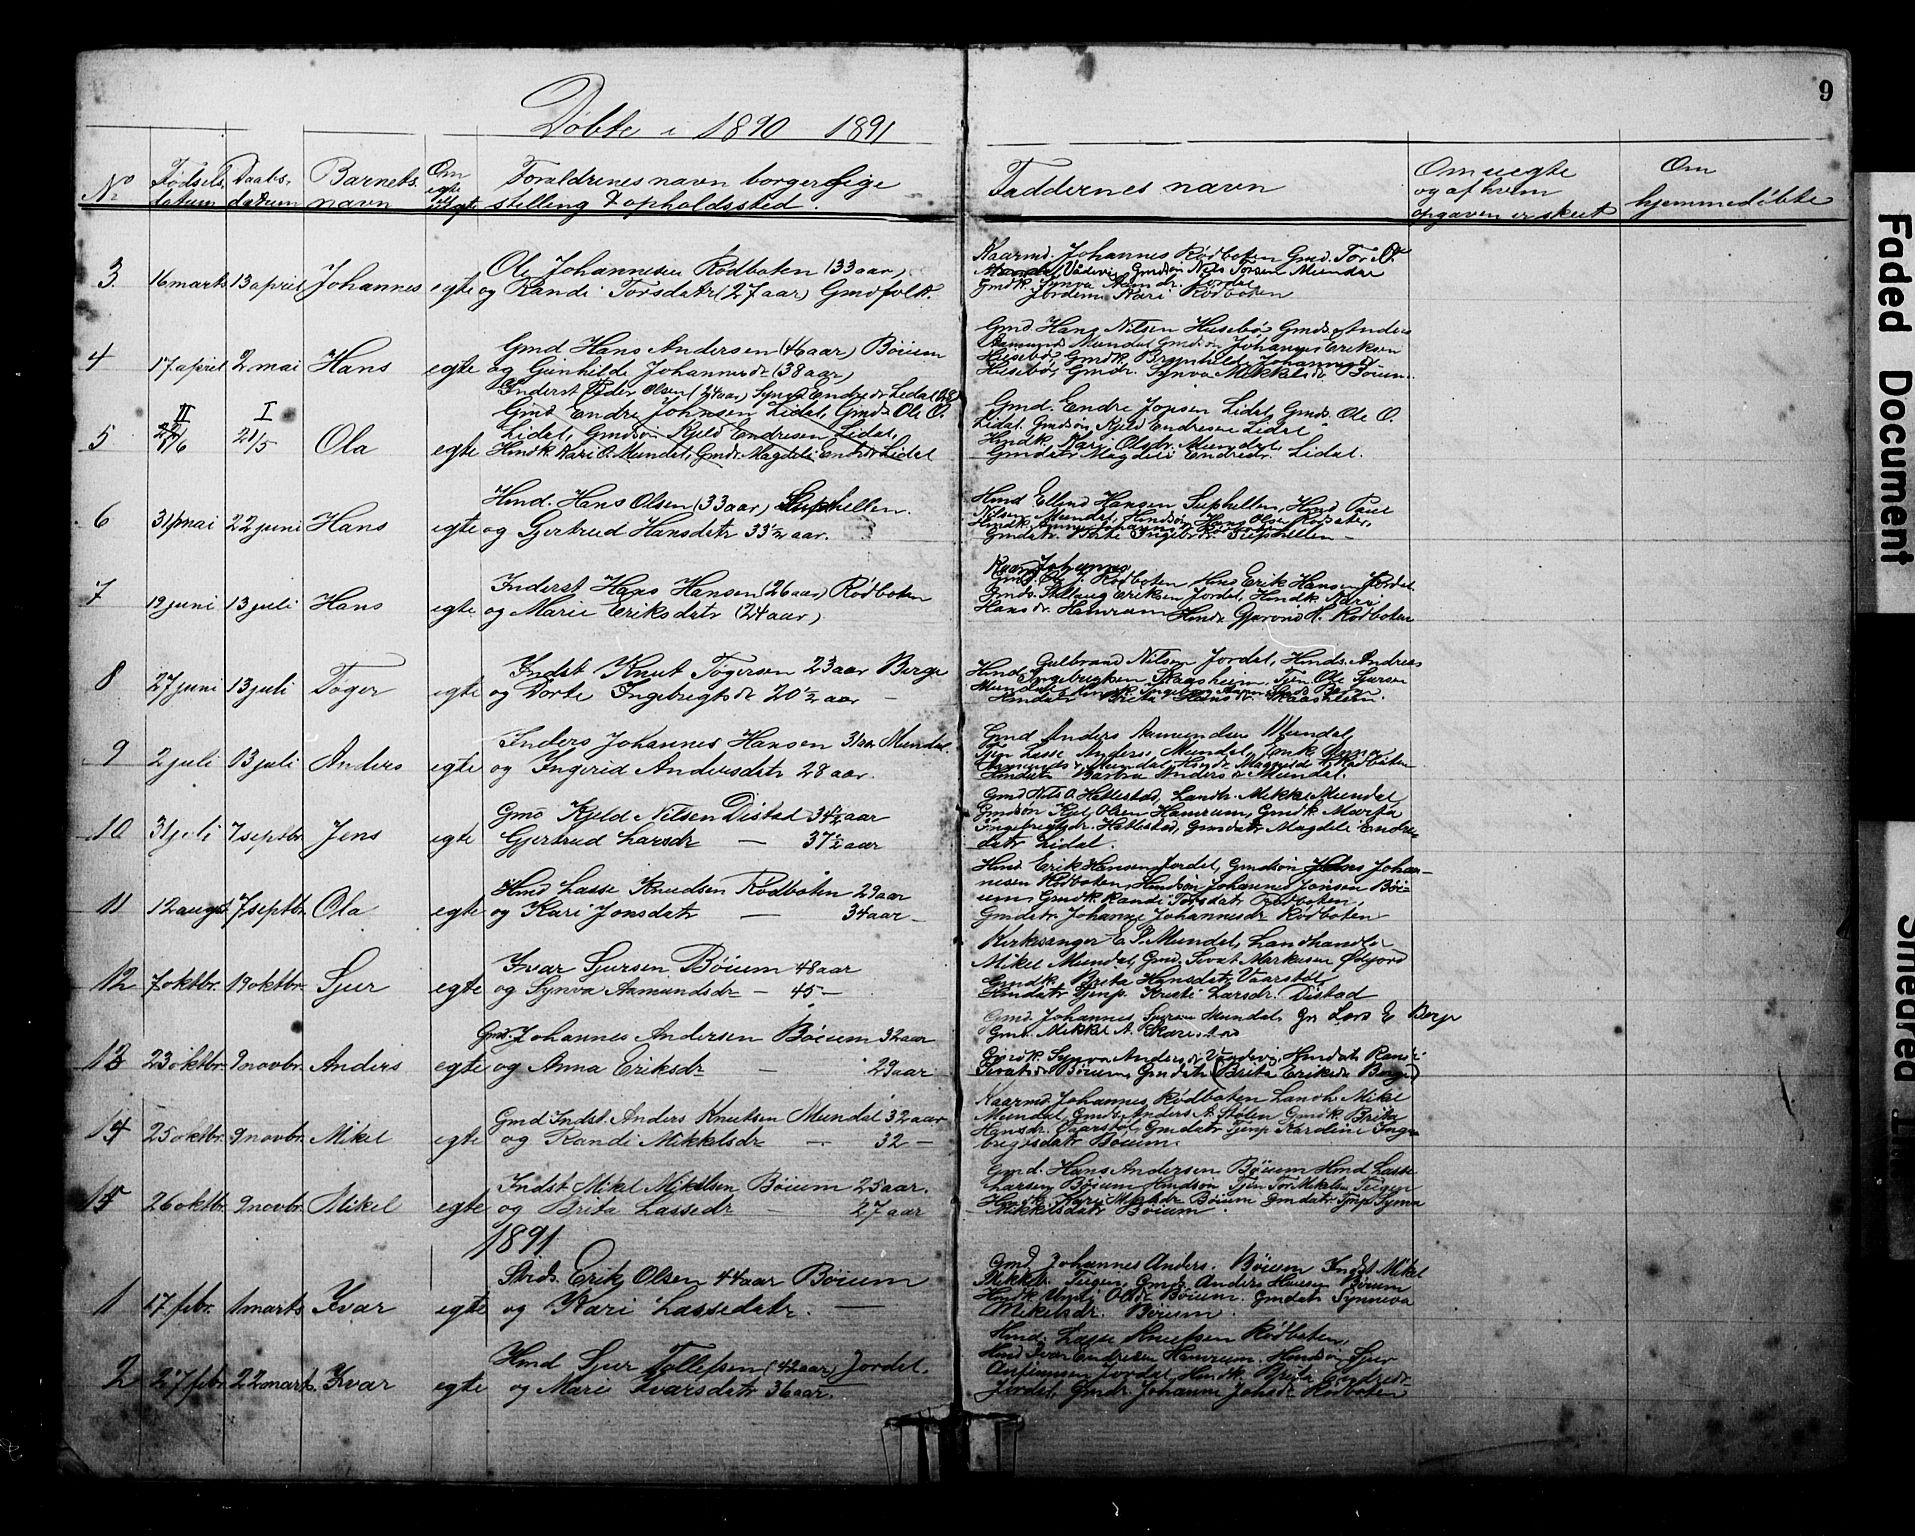 Døbte i 1890 1891
9
No
Fødsels datum
Daabs. datum
Barnets navn
Om egte uegte
Foraldrenes navn borgerlige
stilling & opholdssted.
Faddernes navn
Om uegte
og af hvem
opgaven er skeet
Om
hjemmedøbte
3 16 marts 13 april Johannes egte
Ole Johannesen Rødboten (33 aar)
og Randi Torsdatr (27 aar) Gmdfolk.
Kaarmd. Johannes Rødboten Gmd. Tor O.
Gmdsøn Nils Torsen Mundal
Gmdk. Synva Jordal
Jordem Kari Rødboten
4 17 april 2 mai Hans egte
Gmd Hans Andersen (46 aar) Bøium
og Gunhilde Johannesdr (38 aar)
Gmd. Hans Nilsen Husebø Gmds. Anders
Aamunds Mundal Gmdsøn Johannes Eriksen
Husebø, Gmdk. Brynhild Johannesdr
Husebø, Gmdr. Synva Mikkelsdr Bøium.
5 II I 21/5 Ola egte
Inderst Peder Olsen (24 aar) Synva Endredr Lidal
Gmd Endre Johnsen Lidal, Gmds Ole O.
Lidal, Gmdsøn Kjeld Endresen Lidal,
Hmdk. Kari O. Mundal, Gmdr. Magdeli Endredr Lidal
Gmd. Endre Jonsen Lidal, Gmds. Ole O.
Lidal. Gmdsøn Kjeld Endresen Lidal
Hmdk. Kari Olsdr. Mundal,
Gmdatr Magdeli Endredr. Lidal.
6 31 mai 22 juni Hans egte
Hmd. Hans Olsen (33 aar) Suphellen.
og Gjertrud Hansdatr 33½ aar.
Hmd Ellend Hansen Suphellen, Hmd Paul
Nilsen Mundal, Hmdsøn Hans Olsen Rødboten,
Gmdatr. Brite Ingebr.dr. Suphellen –
7 19 juni 13 juli Hans egte
Inderst Hans Hansen (26 aar) Rødboten
og Marie Eriksdatr (24 aar)
Kaarm Johannes
J. Rødboten Hmd Erik Hansen Jordal
Gmds. Eriksen Jordal, Hmdk. Kari
Hansdr. Hamrum Hmdr Rødboten
8 27 juni 13 juli Tøger egte
Indst Knut Tøgersen 23 aar Berge
og Dorte Ingebrigtsdr 20½ aar –
Gulbrand Nilsen Jordal, Hmds. Andreas
Hmd Ingebrigtsen Skaasheim, Tjen. Ole Sjursen
Mundal, Hmdk Ingeborg Berge.
Hmdatr Brita Hansdr. Skaasheim.
9 2 juli 13 juli Anders egte
Inders Johannes Hansen 31 aar Mundal
og Ingerid Andersdatr 28 aar.
Gmd Anders Aamundsen Mundal,
Tjen Lasse Anders. Mundal, Enk. Anna
Aamundsdr Mundal, Hmdr. Magnilde Rødboten
Hmdatr Barbra Andersdr Mundal.
10 31 juli 7 septbr. Jens egte
Gmd Kjeld Nilsen Distad 34½ aar
Gjertrud Larsdr — 37½ aar
Gmd Nils O. Hattestad, Landh. Mikkel Mundal,
Gmdsøn Kjel Olsen Hamrum, Gmdk Marta
Ingebrigtsdr. Hattestad, Gmdatr Magdeli Endre
datr Lidal.
11 12 augst 7 septbr. Ola egte
Hmd Lasse Knudsen Rødboten 29 aar
og Kari Jonsdatr — 34 aar –
Hmd Erik Hansen Jordal, Gmdsøn Johan–
nesen Rødboten, Hmdsøn Johannes Jonsen Bøi–
um, Gmdk. Randi Torsdatr Rødboten,
Gmdatr. Johanne Johannesdr Rødboten
12 7 oktbr. 19 oktbr. Sjur egte
Ivar Sjursen Bøium 48 aar
og Synva Aamundsdr – 45 –
Kirksanger E. P. Mundal, Landhandler
Mikel Mundal, Gmd. Sivat Markusen
Gmdk. Brita Hansdatr Vaarstøl
Hmdatr Tjenp. Kristi Larsdr. Distad
13 23 oktbr. 9 novbr. Anders egte
Gmd. Johannes Andersen Bøium 32 aar
og Anna Eriksdr — 29 aar
Gmd. Johannes Sjursen Mundal, Gm Lars E Berge
Gmd. Mikkel A.
Gmdk. Synva Andersdr Hmdatr Randi
Sivatsdr Bøium, Gmdatr (Brita Eriksdr Berge)
14 25 oktbr. 9 novbr. Mikel egte
Gmd Indst. Anders Knutsen Mundal 32 aar
og Randi Mikkelsdr — 32 –
Kaarmd Johannes Rødboten Landh. Mikel
Mundal, Gmds. Anders A. Stølen Gmdk. Brita
Hansdr. Vaarstøl, Gmdatr Tjenp Karoline Inge
brigtsdatr Bøium.
15 26 oktbr. 9 novbr. Mikel egte
Indst Mikel Mikelsen Bøium 25 aar.
og Brita Lassedr — 27 aar
Gmd. Hans Andersen Bøium Hmd Lasse
Larsen Bøium Hmdsøn Tjen Tor Mikelsen Teigen
Hmdk. Kari Bøium Gmdatr Tjnp Synva
Mikkelsdatr Bøium.
1891
1 17 febr. 1 marts Ivar egte
Erik Olsen 44 aar Bøium
og Kari Lassedatr. —
Gmd Johannes Anders. Bøium Indst Mikel
Mikkels. Teigen, Gmds Anders Hansen Bøium
Hmdk Olsdr Bøium. Gmdatr Synneva
Mikelsdr. Bøium.
2 27 febr. 22 marts. Ivar egte
Hmd Sjur Tollefsen (42 aar) Jordal.
og Mari Ivarsdatr 36 aar.
Hmd. Lasse Knutsen Rødboten,
Hmd Ivar Endresen Hamrum. Hmdsøn Sjur
Anfinnsen Jordal, Hmdk. Brita Endredr
Jordal, Gmdr. Johanne Johsdr Rødboten
Faded Document
Smeared Ink